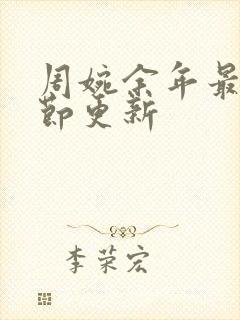 周婉余年最
节更新
李荣宏